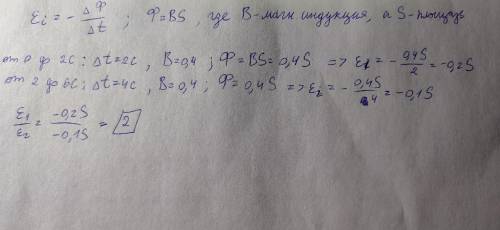 Ei = - ΔФ / Δt ; Ф=BS, где B-магн. индукция, а S-площадь
от 0 до 2с : Δt=2с , B=0,4 ; Ф=BS=0,4S => E1 = - 0,4S / 2 = -0,2S
от 2 до 6с : Δt=4с , B=0,4 ; Ф=0,4S => E2 = - 0,4S / 4 = -0,1S
E1 / E2 = -0,2S / -0,1S = 2